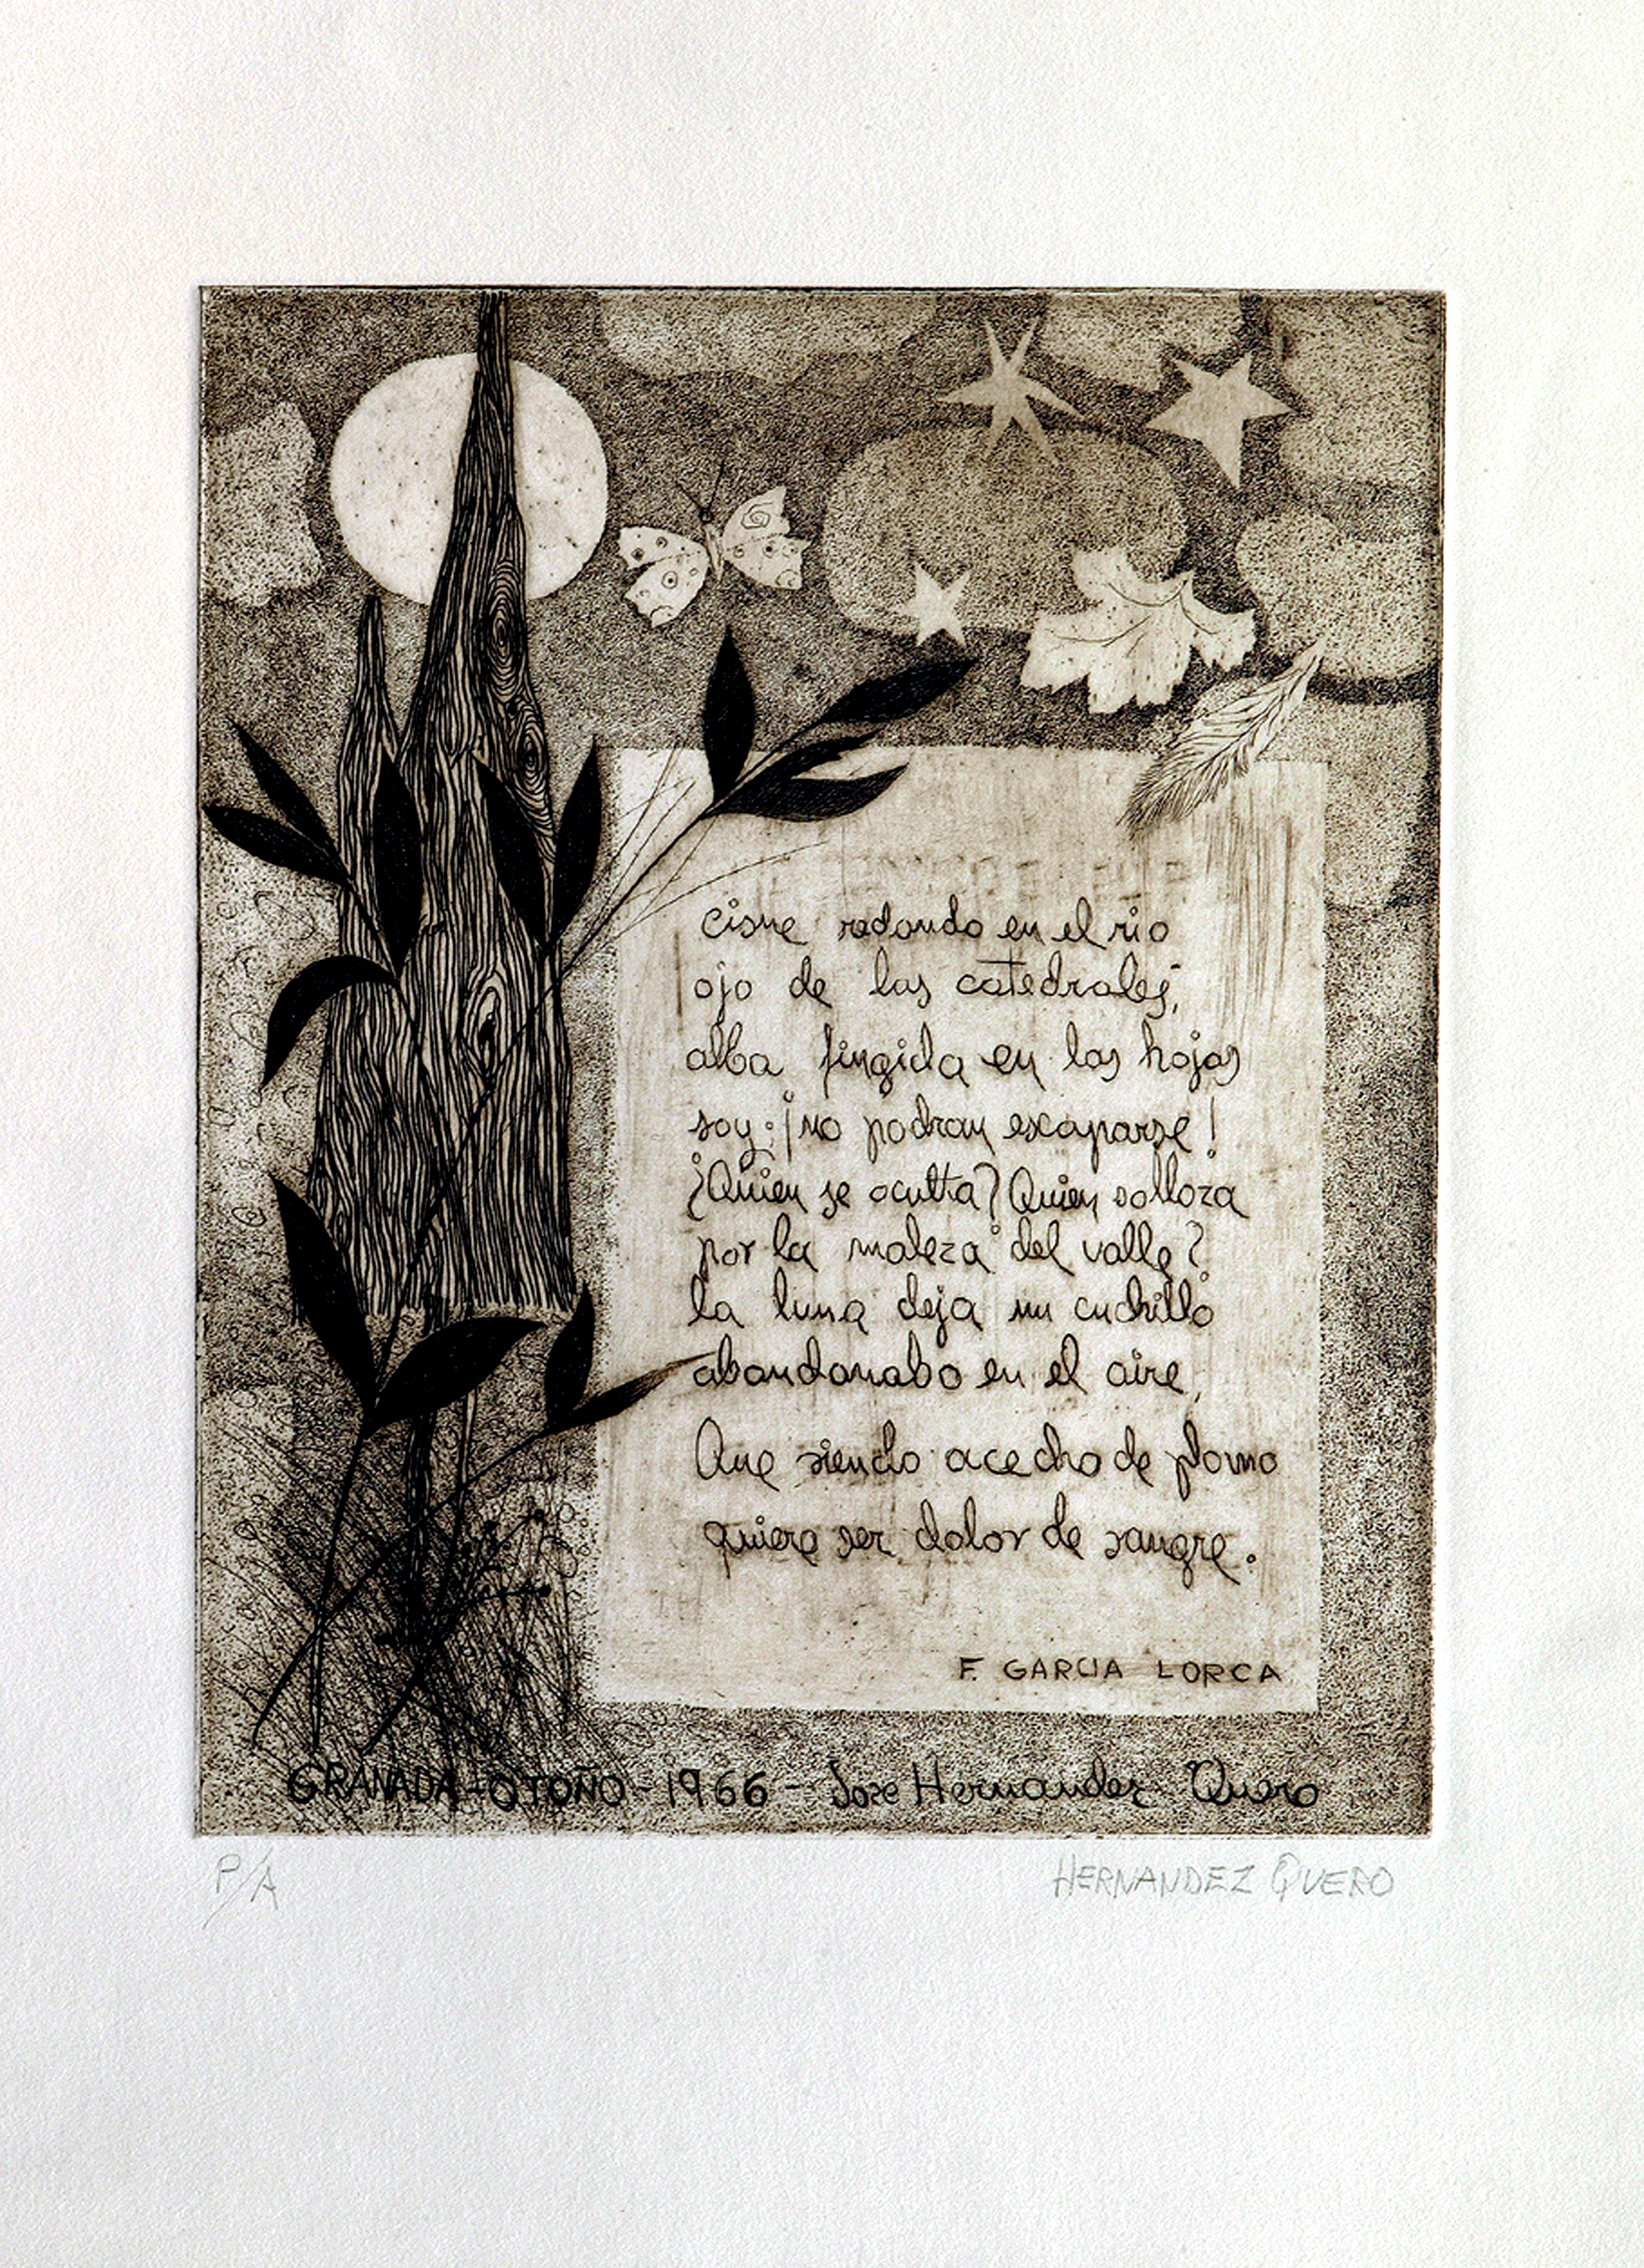 cisne redondo en el rio
ojo de las catedrales,
alba fingida en las hojas
soy: ¡no podran escaparse!
¿Quien se oculta? Quien solloza
por la maleza del valle?
la luna deja un cuchillo
abandonabo en el aire,
Que siendo acecho de plomo
quiere ser dolor de sangre.
F. GARCIA LORCA
GRANADA-OTOÑO-1966-Jose Hernandez Quero
P/A HERNANDEZ QUERO